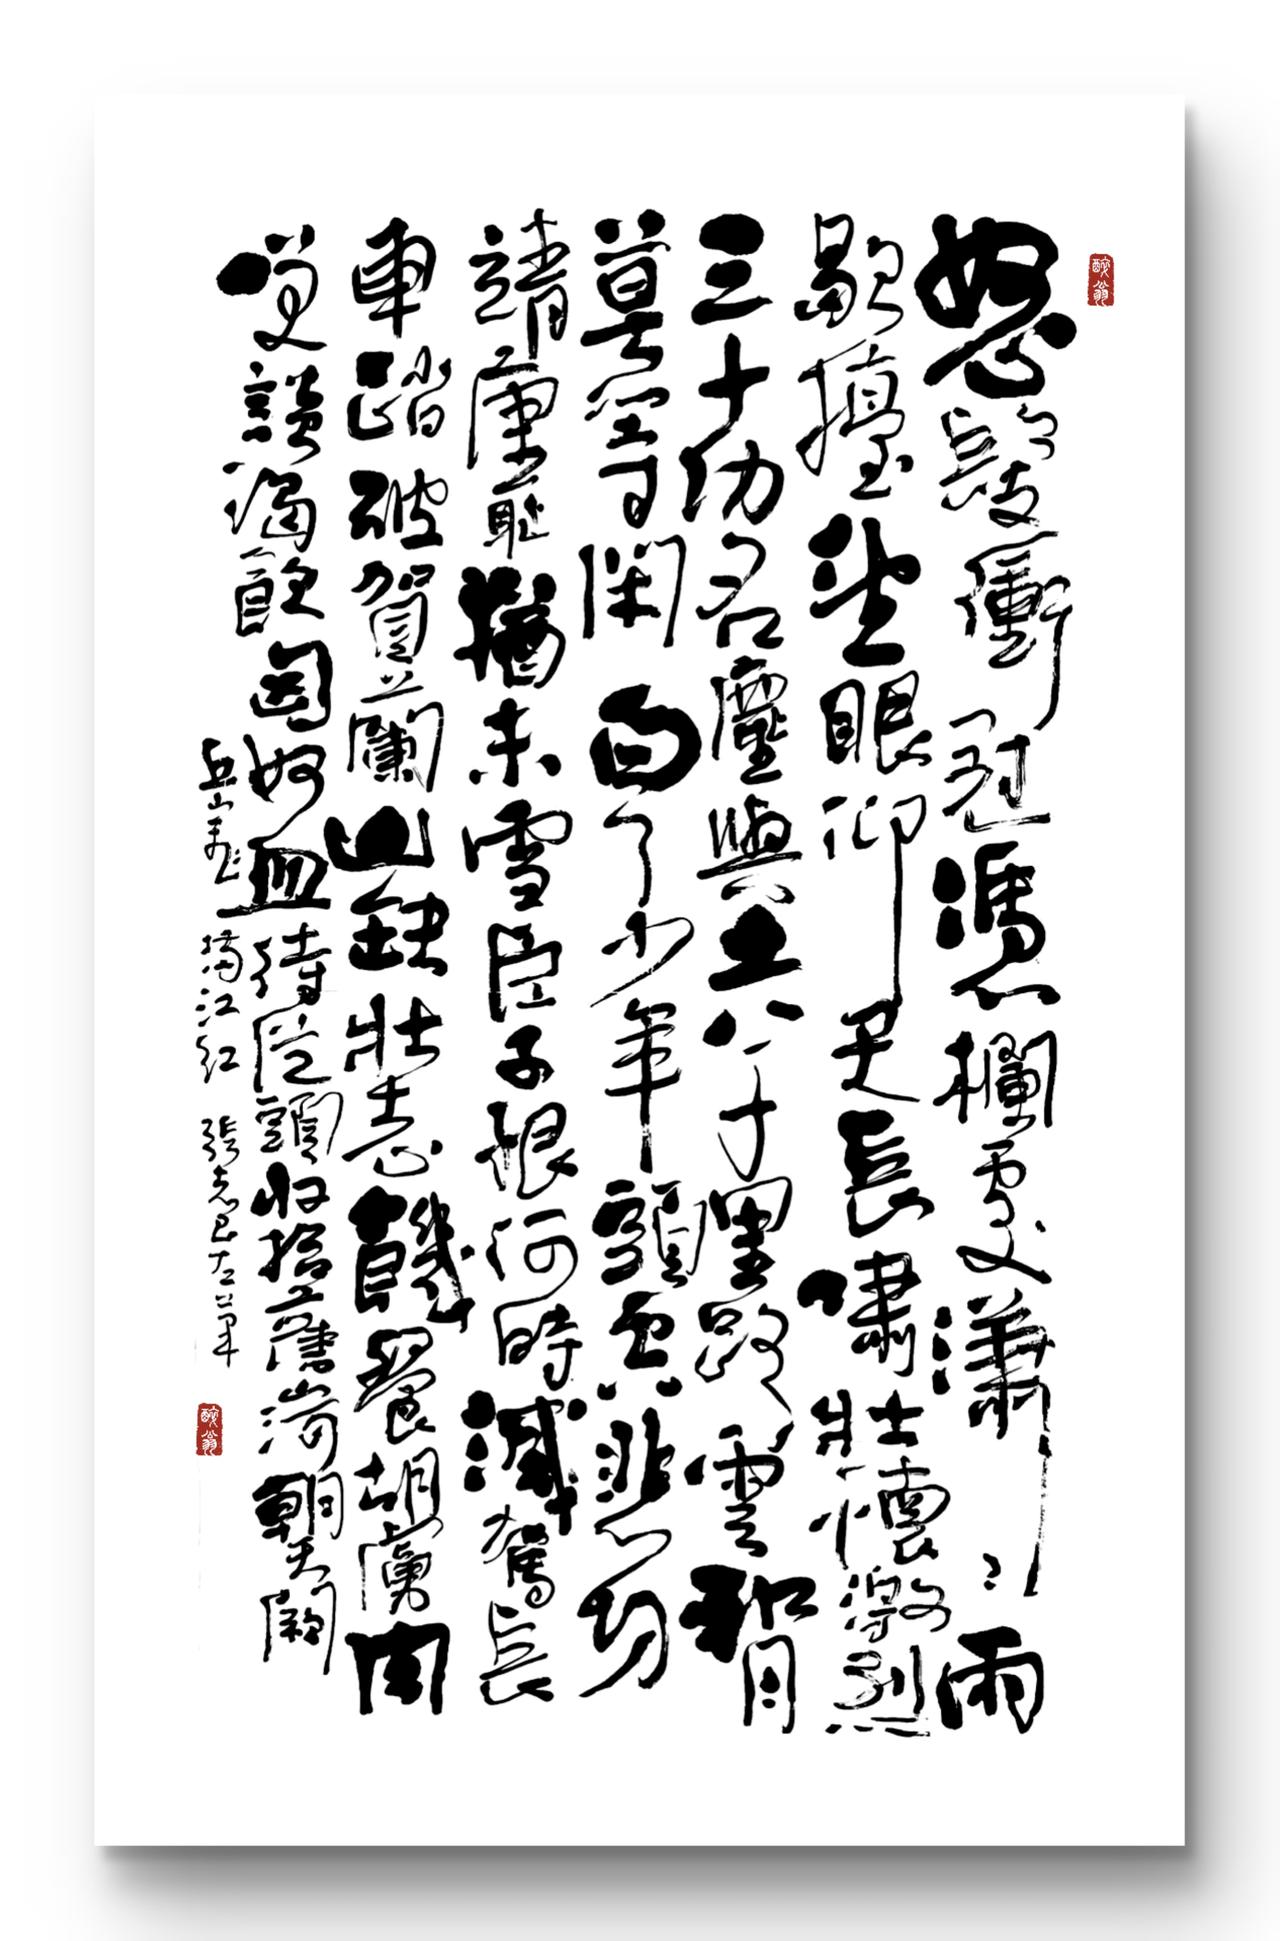 醉翁
怒髮衝冠憑欄處瀟〻雨
歇擡望眼仰天長嘯壯懷激烈
三十功名塵與土八千里路雲和月
莫等閑白了少年頭空悲切
靖康恥猶未雪臣子恨何時滅駕長
車踏破賀蘭山缺壯志饑餐胡虜肉
咲談渴飲匈奴血待從頭收拾舊山河朝天闕
岳飛 滿江红 張志 左筆
醉翁